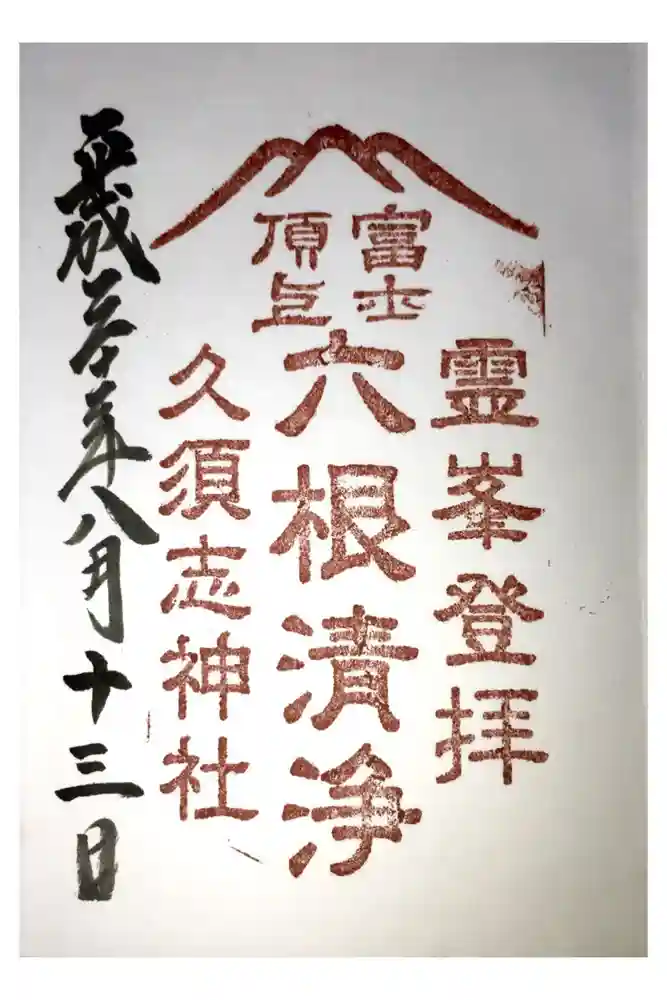 富士
頂上
霊峯登拝
六根清浄
久須志神社
平成三十年八月十三日